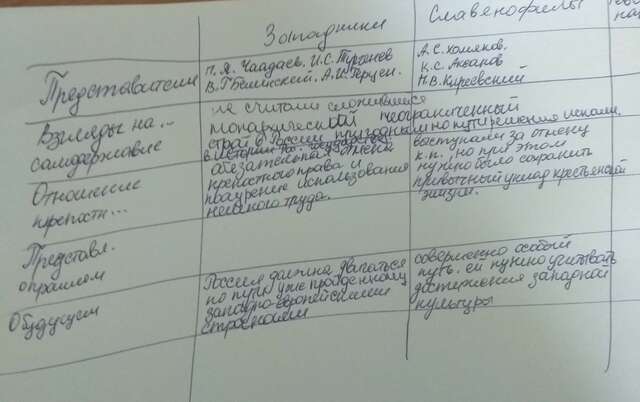 Западники
Славенофилы
Представители
П. Я. Чаадаев. И.С. Тургенев
В.Г Белинский. А.И. Герцен.
А.С. Хомяков.
К.С. Аксаков
И.В. Киреевский
Взгляды на...
самодержавие
не считали сложившиеся
монархический неограниченный
строй в России
Отношение
крепостн...
обязательная отмена
крепостного права и
использования
наемного труда.
выступали за отмену
к.п., но при этом
нужно было сохранить
привычный уклад крестьянской
жизни.
Представл.
о прошлом
О будущем
Россия должна двигаться
по пути уже пройденному
западно-европейскими
странами
совершенно особой
путь. ей нужно учитывать
достижения западной
культуры